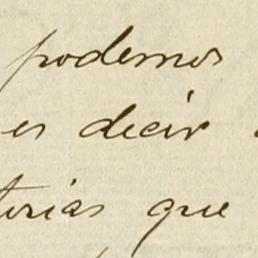 podemos
es decir
torias que